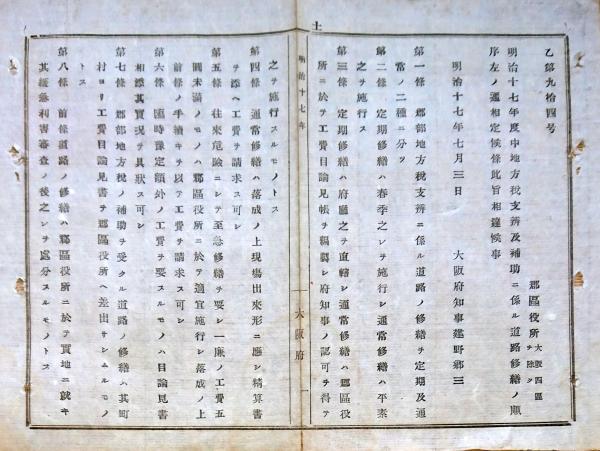 土
乙第九拾四号
郡區役所 大阪四區ヲ除ク
明治十七年度中地方税支辨及補助ニ係ル道路修繕ノ順
序左ノ通相定候條此旨相達候事
明治十七年七月三日
大阪府知事建野郷三
第一條 郡部地方税支辨ニ係ル道路ノ修繕ヲ定期及通
常ノ二種ニ分ツ
第二條 定期修繕ハ春季之レヲ施行シ通常修繕ハ平素
之ヲ施行ス
第三條 定期修繕ハ府廳之ヲ直轄シ通常修繕ハ郡區役
所ニ於テ工費目論見帳ヲ編製シ府知事ノ認可ヲ得テ
明治十七年
大阪府
一
之ヲ施行スルモノトス
第四條 通常修繕ハ落成ノ上現塲出來形ニ應シ精算書
ヲ添ヘ工費ヲ請求ス可シ
第五條 往來危險ニシテ至急修繕ヲ要シ一廉ノ工費五
圓未滿ノモノハ郡區役所ニ於テ適宜施行シ落成ノ上
前條ノ手續キヲ以テ工費ヲ請求ス可シ
第六條 臨時豫定額外ノ工費ヲ要スルモノハ目論見書
相添其實況ヲ具狀ス可シ
第七條 郡部地方税ノ補助ヲ受クル道路ノ修繕ハ其町
村ヨリ工費目論見書ヲ郡區役所ヘ差出サシムルモノ
トス
第八條 前條道路ノ修繕ハ郡區役所ニ於テ實地ニ就キ
其緩急利害審査ノ後之レヲ處分スルモノトス